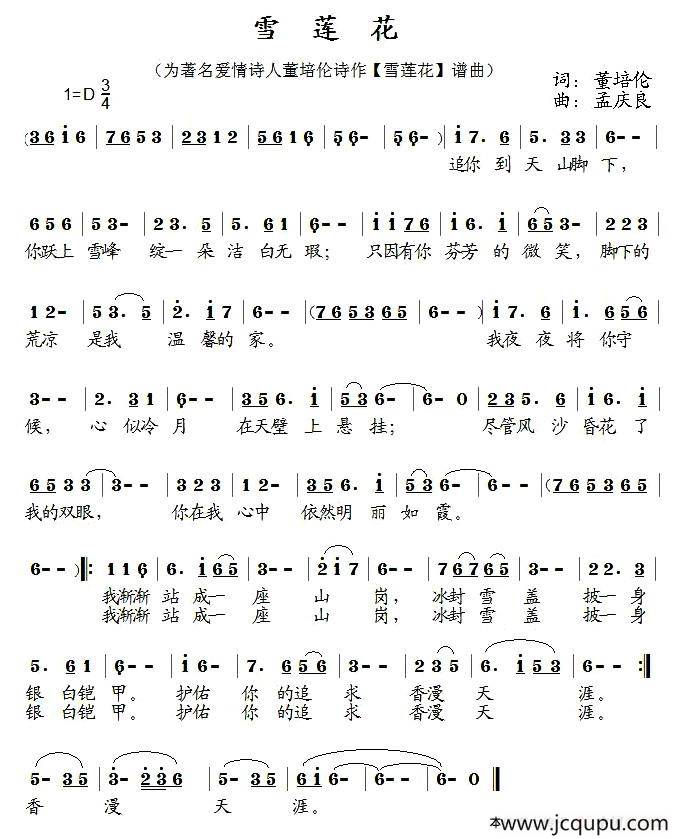 雪 莲 花
（为著名爱情诗人董培伦诗作【雪莲花】谱曲）
1=D 3/4
词：董培伦
曲：孟庆良
(3 6 i 6 | 7 6 5 3 | 2 3 1 2 | 5· 6 1 2 | 5 6 - | 6 - - ) | i 7· 6 | 5· 3 3 | 6 - - |
追你 到 天 山脚 下，
6 5 6 | 5 3 - | 2 3· 5 | 5· 6 1 | 6 - - | i i 7 6 | 6 5· i | 6 5 3 - | 2 2 3 |
你跃上 雪峰 绽一 朵 洁 白无 瑕； 只因有你 芬芳 的 微 笑，脚下的
1 2 - | 5 3· 5 | 2· i 7 | 6 - - | (7 6 5 3 6 5 | 6 - - ) | i 7· 6 | 5· i 6 5 |
荒凉 是我 温 馨的 家。 我夜 夜 将 你守
3 - - | 2· 3 1 | 6 - - | 3 5 6· i | 5 3 6 - | 6 - 0 | 2 3 5· 6 | i 6· i |
候， 心 似冷 月 在天壁 上 悬 挂； 尽管风 沙 昏花 了
6 5 3 3 | 3 - - | 3 2 3 | 1 2 - | 3 5 6· i | 5 3 6 - | 6 - - | (7 6 5 3 6 5 |
我的双眼， 你在我 心中 依然明 丽 如 霞。
6 - - ) ‖: 1 1 6 | 6· i 6 5 | 3 - - | 2 i 7 | 6 - - | 7 6 7 6 5 | 3 - - | 2 2· 3 |
我渐渐 站 成一 座 山 岗， 冰封 雪 盖 披一 身
我渐渐 站 成一 座 山 岗， 冰封 雪 盖 披一 身
5· 6 1 | 6 - - | i 6 - | 7· 6 5 6 | 3 - - | 2 3 5 - | 6· i 5 3 | 6 - - :‖
银 白铠 甲。 护佑 你 的追 求 香漫 天 涯。
银 白铠 甲。 护佑 你 的追 求 香漫 天 涯。
5 - 3 5 | 3 - 2 3 6 | 5 - 3 5 | 6 i 6 - | 6 - - | 6 - 0 ‖
香 漫 天 涯。
本www.jcqupu.com